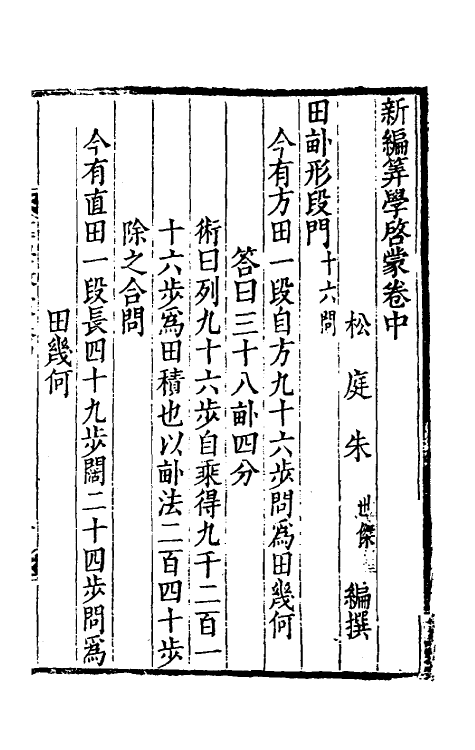 新編筭學啓蒙卷中
松庭朱世傑編撰
田畝形段門十六問
今有方田一段自方九十六步問爲田幾何
答曰三十八畝四分
術曰列九十六步自乘得九千二百一
十六步爲田積也以畝法二百四十步
除之合問
今有直田一段長四十九步闊二十四步問爲
田幾何